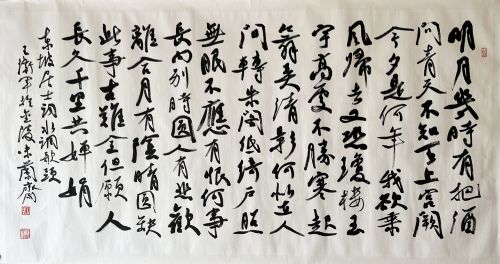 明月幾時有把酒
問青天不知天上宮闕
今夕是何年我欲乘
風歸去又恐瓊樓玉
宇高處不勝寒起
舞弄清影何似在人
間轉朱閣低綺戶照
無眠不應有恨何事
長向別時圓人有悲歡
離合月有陰晴圓缺
此事古難全但願人
長久千里共嬋娟
東坡居士詞水調歌頭
王衛軍於金陵蘭齋